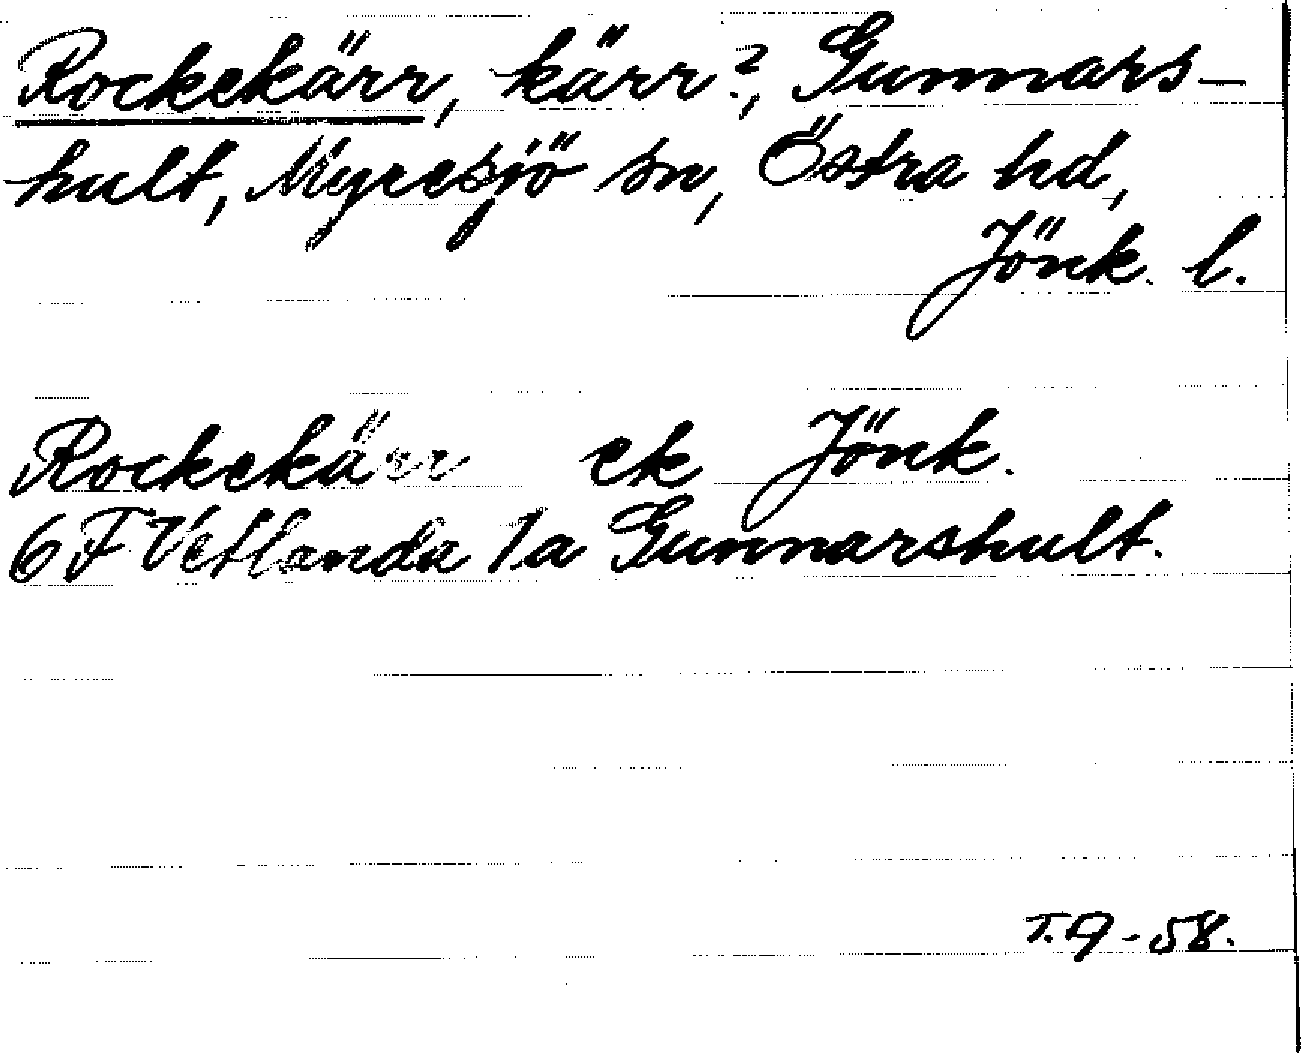 Rockekärr, kärr?, Gunnars-
hult, Myresjö sn, Östra hd,
Jönk. l.
Rockekärr ek Jönk.
6 F Vetlanda 1a Gunnarshult.
T.A-58.